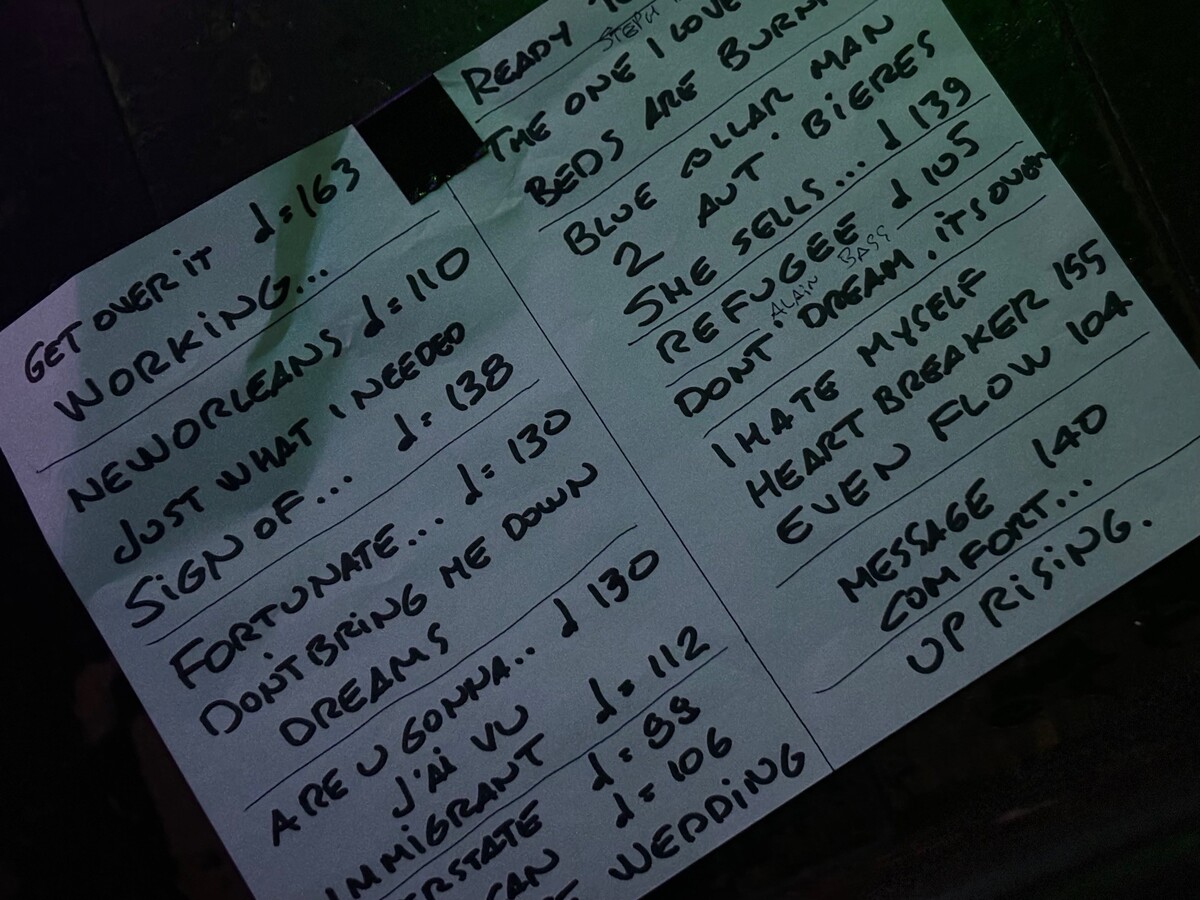 GET OVER IT ♩=163
WORKING...
NEW ORLEANS ♩=110
JUST WHAT I NEEDED
SIGN OF... ♩=138
FORTUNATE... ♩=130
DON'T BRING ME DOWN
DREAMS
ARE U GONNA.. ♩ 130
J'AI VU
IMMIGRANT ♩=112
♩=99
♩=106
WEDDING
READY
STEPH
THE ONE I LOVE
BEDS ARE
BLUE COLLAR MAN
2 AUT. BIERES
SHE SELLS... ♩ 139
REFUGEE ♩ 105
ALAIN BASS
DONT. DREAM. IT SOVER
I HATE MYSELF
HEART BREAKER 155
EVEN FLOW 104
MESSAGE 140
COMFORT...
UPRISING.